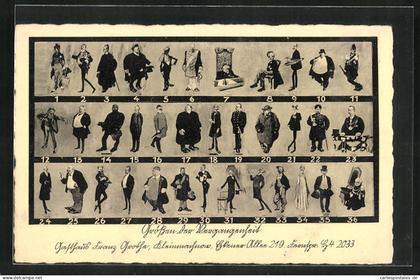 1 2 3 4 5 6 7 8 9 10 11
12 13 14 15 16 17 18 19 20 21 22 23
24 25 26 27 28 29 30 31 32 33 34 35 36
Größen der Vergangenheit
Gasthaus Franz Grothe, Kleinmachnow, Allee 219. Fernspr. 84 2033